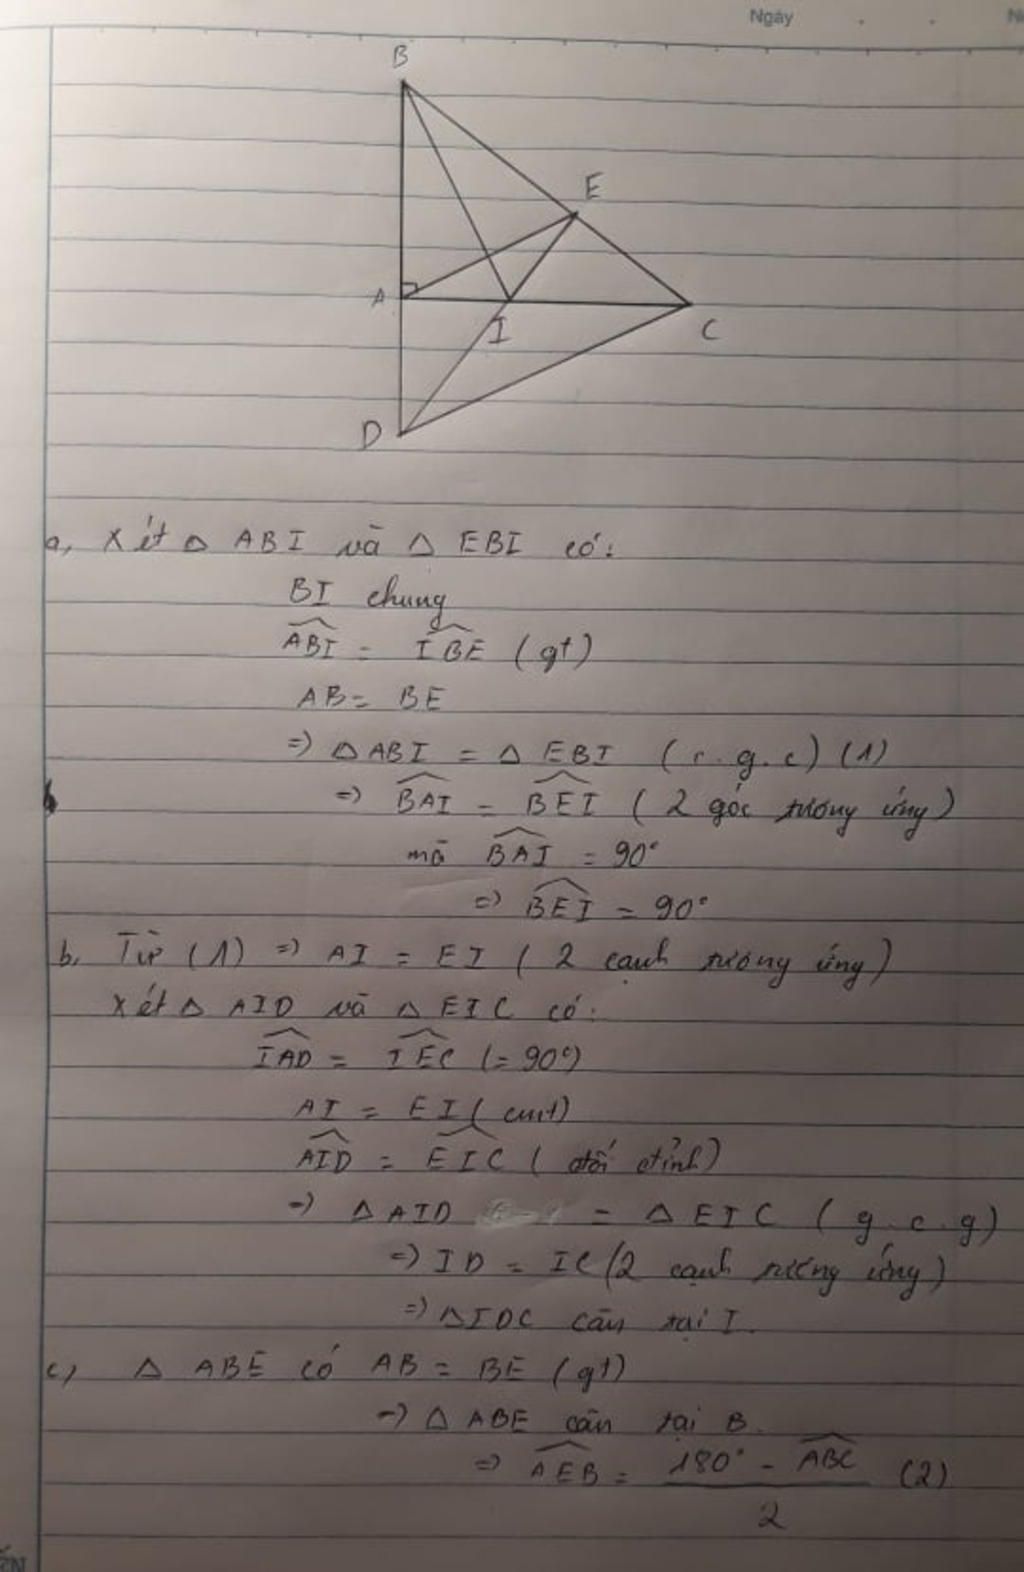 Ngày
B
E
A
I
C
D
a, Xét △ ABI và △ EBI có:
BI chung
\widehat{ABI} = \widehat{IBE} (gt)
AB = BE
=> △ ABI = △ EBI (c.g.c) (1)
=> \widehat{BAI} = \widehat{BEI} (2 góc tương ứng)
mà \widehat{BAI} = 90°
=> \widehat{BEI} = 90°
b, Từ (1) => AI = EI (2 cạnh tương ứng)
Xét △ AID và △ EIC có:
\widehat{IAD} = \widehat{IEC} (= 90°)
AI = EI (cmt)
\widehat{AID} = \widehat{EIC} (đối đỉnh)
=> △ AID = △ EIC (g.c.g)
=> ID = IC (2 cạnh tương ứng)
=> △IDC cân tại I.
c, △ ABE có AB = BE (gt)
=> △ ABE cân tại B.
=> \widehat{AEB} = \frac{180° - \widehat{ABC}}{2} (2)